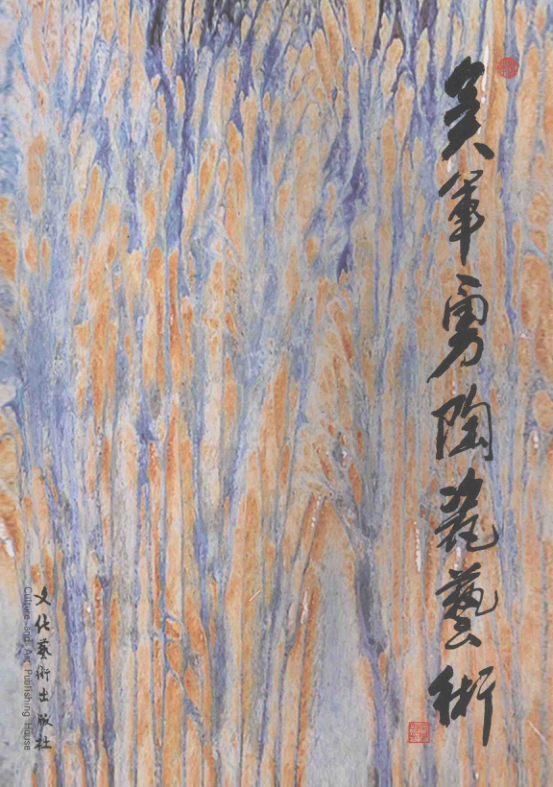 吴军勇陶瓷藝術
文化藝術出版社
Culture and Art Publishing House